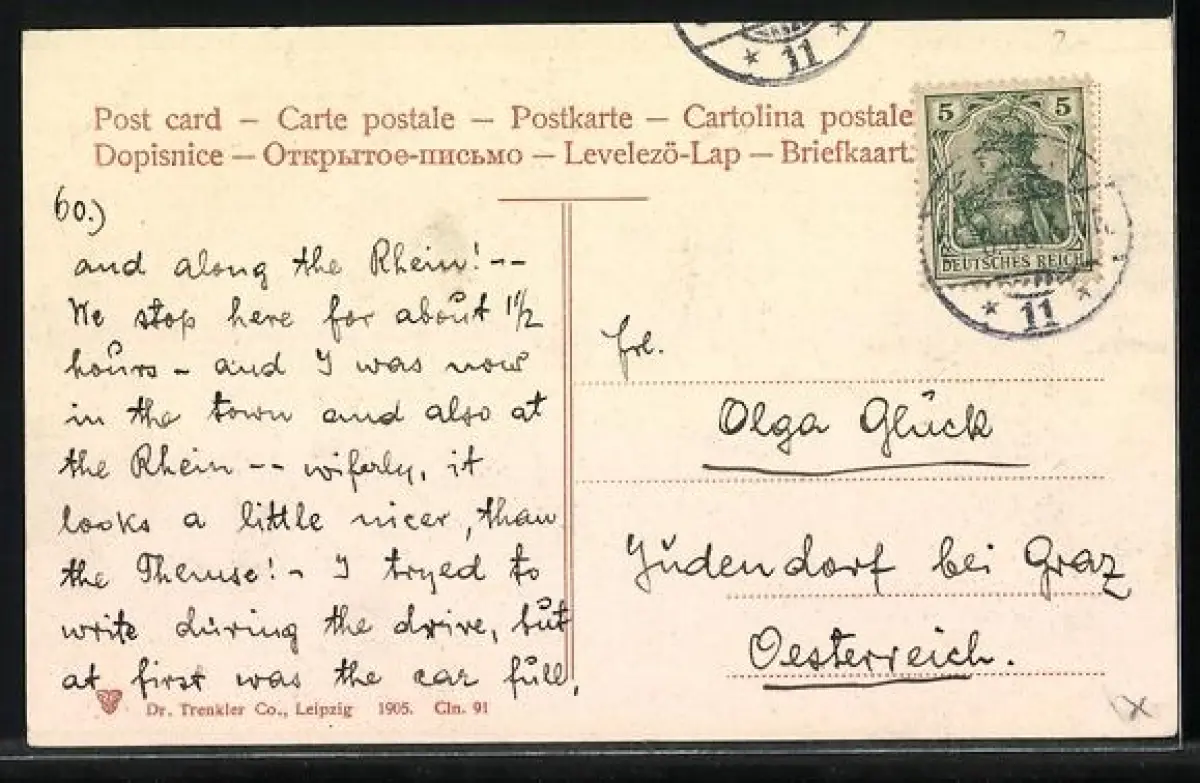 Post card – Carte postale – Postkarte – Cartolina postale
Dopisnice – Открытое-письмо – Levelező-Lap – Briefkaart.
60.)
and along the Rhein! --
We stop here for about 1 1/2
hours - and I was now
in the town and also at
the Rhein -- wiferly, it
looks a little nicer, than
the Themse! - I tryed to
write during the drive, but
at first was the car full,
Dr. Trenkler Co., Leipzig 1905. Cln. 91
5 5
DEUTSCHES REICH
* 11 *
* 11 *
Frl.
Olga Glück
Judendorf bei Graz
Oesterreich.
x